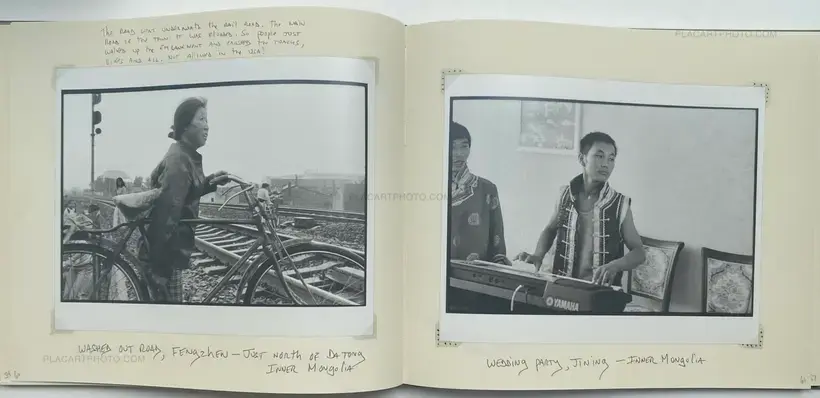 THE ROAD WENT UNDERNEATH THE RAIL ROAD. THE MAIN
ROAD OF THE TOWN. IT WAS . SO PEOPLE JUST
WALKED UP THE EMBANKMENT AND CROSSED THE TRACKS,
BIKES AND ALL. NOT ALLOWED IN THE USA!
PLACARTPHOTO.COM
PLACARTPHOTO.COM
YAMAHA
WASHED OUT ROAD, FENGZHEN — JUST NORTH OF DATONG
INNER MONGOLIA
PLACARTPHOTO.COM
WEDDING PARTY, JINING — INNER MONGOLIA